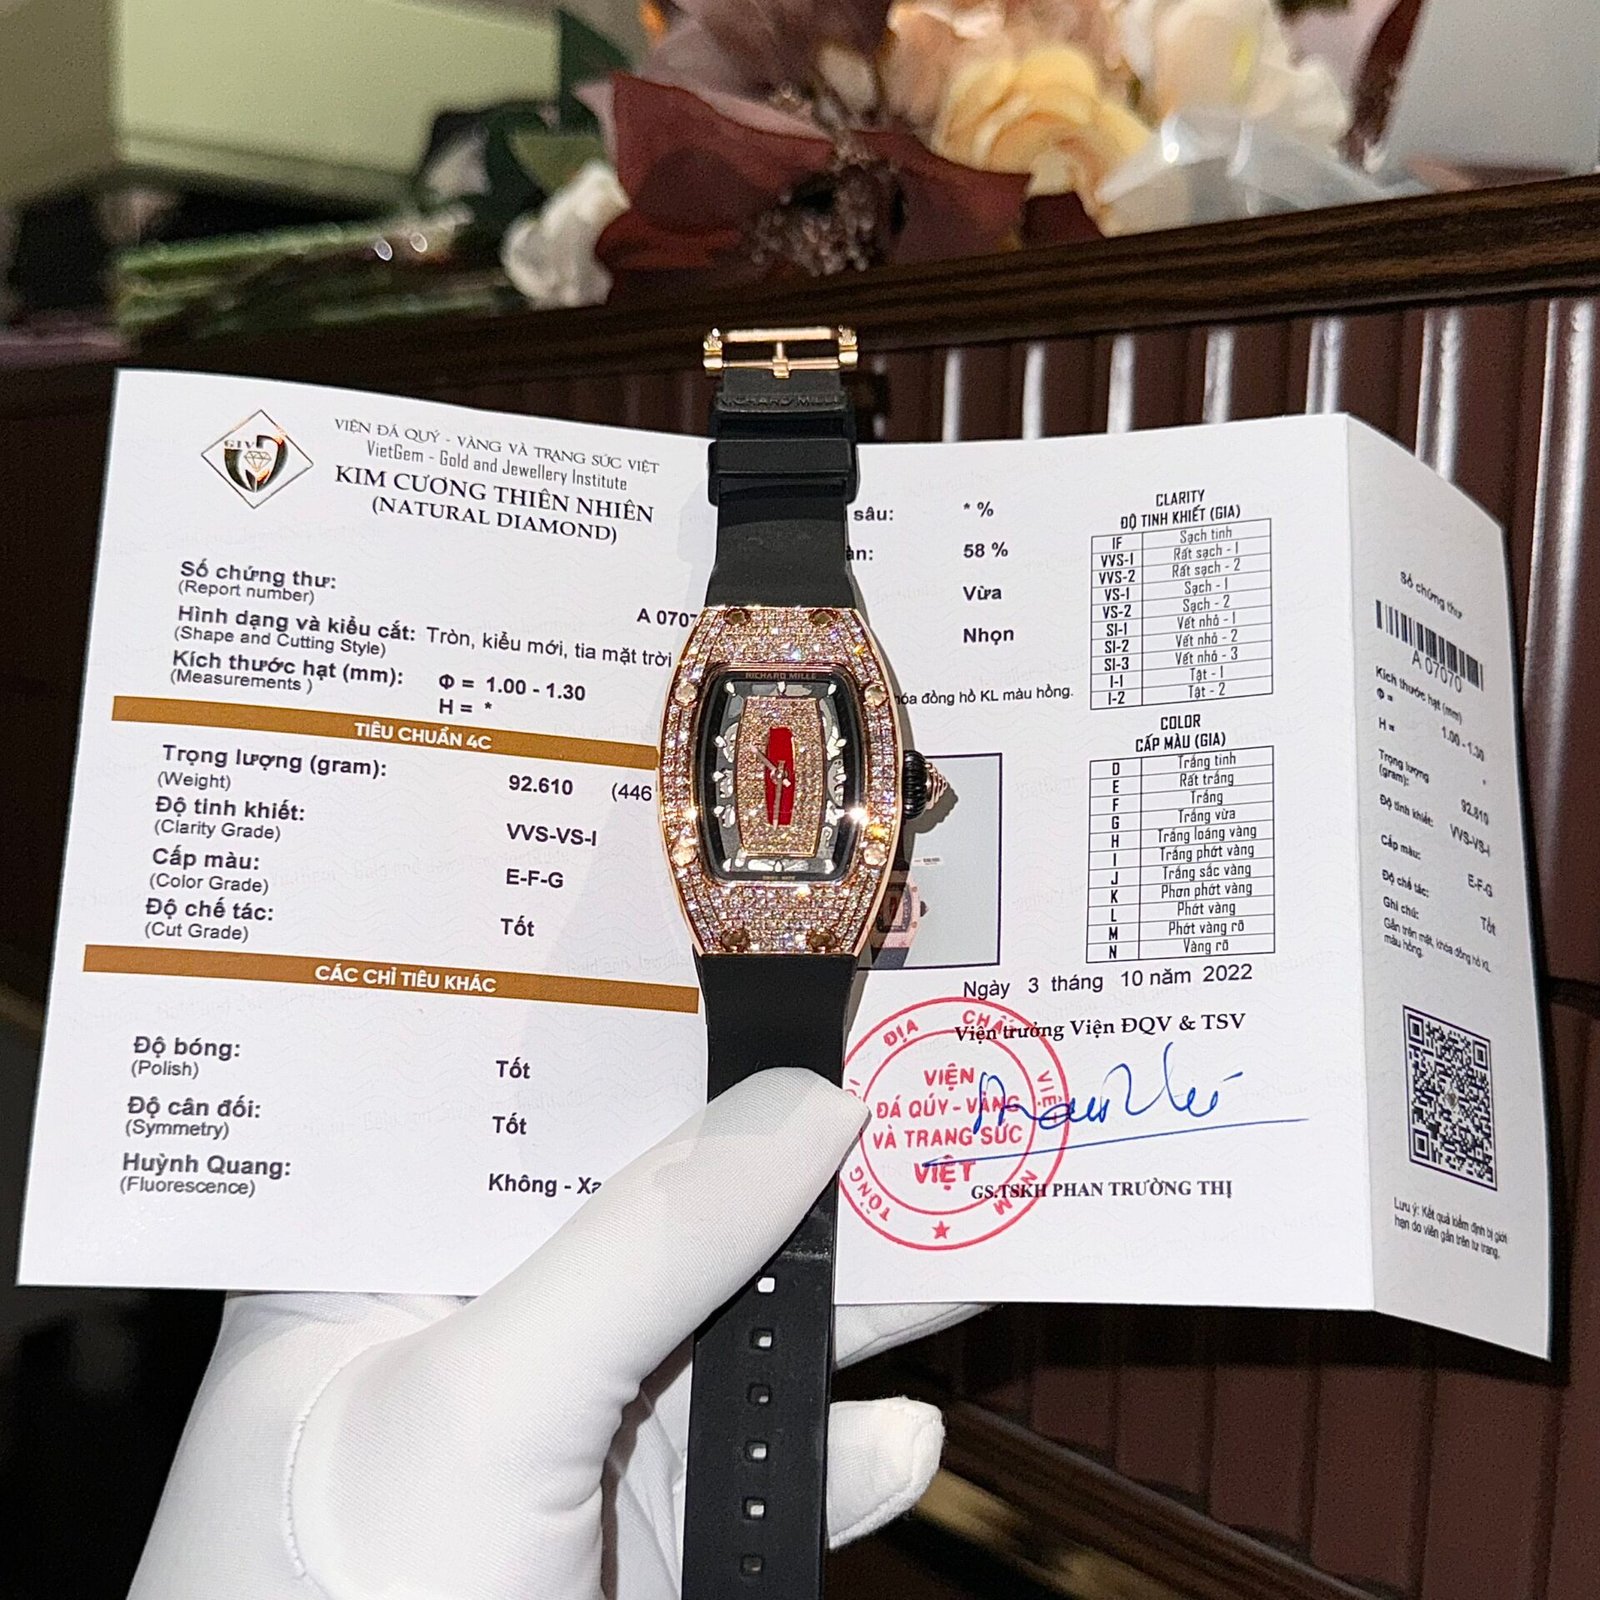 VIỆN ĐÁ QUÝ - VÀNG VÀ TRANG SỨC VIỆT
VietGem - Gold and Jewellery Institute
KIM CƯƠNG THIÊN NHIÊN
(NATURAL DIAMOND)
Số chứng thư:
(Report number)
A 0707
Hình dạng và kiểu cắt: Tròn, kiểu mới, tia mặt trời
(Shape and Cutting Style)
Kích thước hạt (mm): Φ = 1.00 - 1.30
(Measurements ) H = *
TIÊU CHUẨN 4C
Trọng lượng (gram): 92.610 (446
(Weight)
Độ tinh khiết: VVS-VS-I
(Clarity Grade)
Cấp màu: E-F-G
(Color Grade)
Độ chế tác: Tốt
(Cut Grade)
CÁC CHỈ TIÊU KHÁC
Độ bóng: Tốt
(Polish)
Độ cân đối: Tốt
(Symmetry)
Huỳnh Quang: Không - Xa
(Fluorescence)
RICHARD MILLE
RICHARD MILLE
SWISS MADE
sâu: * %
58 %
Vừa
Nhọn
hóa đồng hồ KL màu hồng.
CLARITY
ĐỘ TINH KHIẾT (GIA)
IF Sạch tinh
VVS-1 Rất sạch - 1
VVS-2 Rất sạch - 2
VS-1 Sạch - 1
VS-2 Sạch - 2
SI-1 Vết nhỏ - 1
SI-2 Vết nhỏ - 2
SI-3 Vết nhỏ - 3
I-1 Tật - 1
I-2 Tật - 2
COLOR
CẤP MÀU (GIA)
D Trắng tinh
E Rất trắng
F Trắng
G Trắng vừa
H Trắng loáng vàng
I Trắng phớt vàng
J Trắng sắc vàng
K Phơn phớt vàng
L Phớt vàng
M Phớt vàng rõ
N Vàng rõ
Ngày 3 tháng 10 năm 2022
Viện trưởng Viện ĐQV & TSV
VIỆN
ĐÁ QÚY - VÀNG
VÀ TRANG SỨC
VIỆT
TỔNG
ĐỊA
VIỆT
NAM
GS.TSKH PHAN TRƯỜNG THỊ
Số chứng thư
A 07070
Kích thước hạt (mm)
Φ = 1.00 - 1.30
H = *
Trọng lượng
(gram): 92.610
Độ tinh khiết: VVS-VS-I
Cấp màu: E-F-G
Độ chế tác: Tốt
Ghi chú:
Gắn trên mặt, khóa đồng hồ KL
màu hồng.
Lưu ý: Kết quả kiểm định bị giới
hạn do viên gắn trên tư trang.